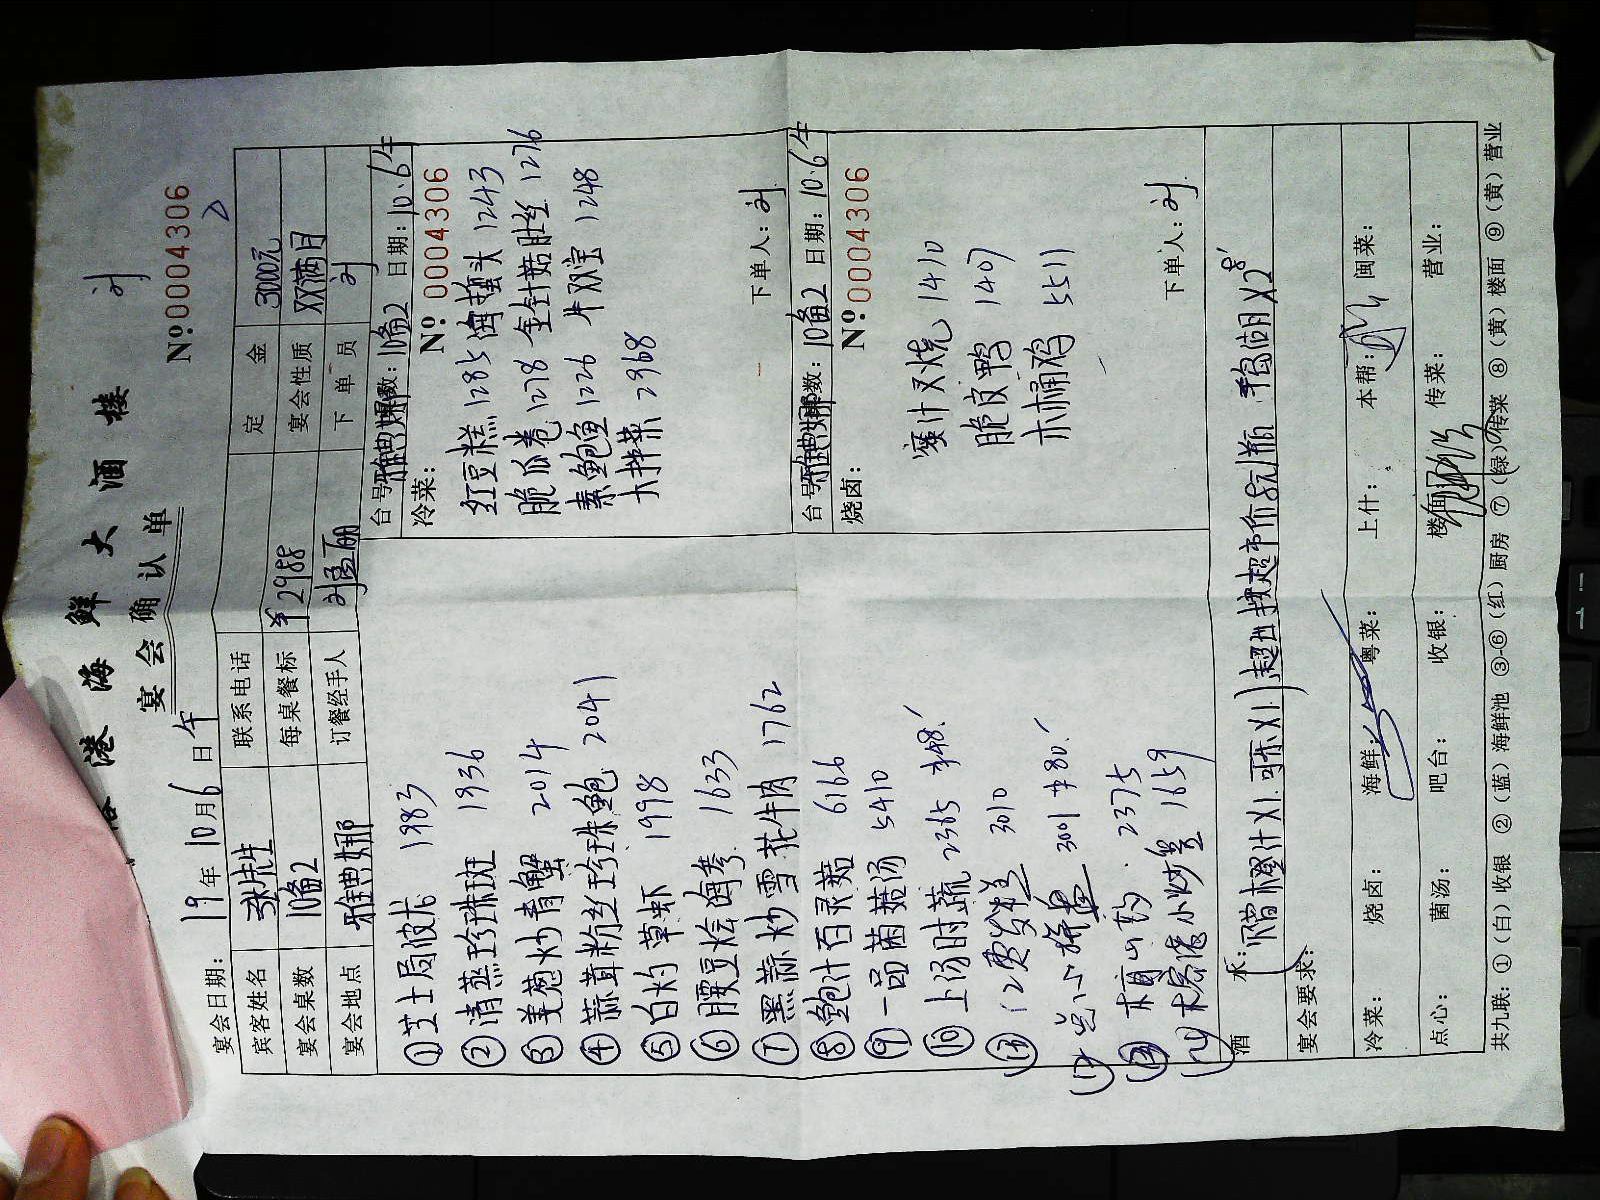 港 海 鲜 大 酒 楼
宴会确认单
刘
Nº:0004306
宴会日期： 19年 10月 6日 午
宾客姓名 张先生 联系电话 定 金 3000元
宴会桌数 10备2 每桌餐标 ¥2988 宴会性质 双满月
宴会地点 雅典娜 订餐经手人 刘孟丽 下 单 员 刘
①芝士焗波龙 1983
②清蒸珍珠斑 1936
③姜葱炒青蟹 2014
④蒜茸粉丝珍珠鲍 2041
⑤白灼草虾 1998
⑥腰豆烩海参 1633
⑦黑蒜炒雪花牛肉 1762
⑧鲍汁百灵菇 6166
⑨一品菌菇汤 5410
⑩上汤时蔬 2365 ¥48!
3010
3001 ¥80!
2375
小炒 1659
台号 雅典娜 桌数：10备2 日期：10.6午
冷菜： Nº: 0004306
红豆糕 1285 海蜇头 1243
脆瓜卷 1278 金针菇肚丝 1276
素鲍鱼 1226 牛双宝 1248
大拌菜 2968
下单人：刘
台号 雅典娜 桌数：10备2 日期：10.6午
烧卤： Nº:0004306
蜜汁叉烧 1410
脆皮鸭 1407
木桶鸡 5511
下单人：刘
酒 水： 赠橙汁X1.可乐X1.
宴会要求：
冷菜： 烧卤： 海鲜： 粤菜： 上什： 本帮： 闽菜：
点心： 菌汤： 吧台： 收银： 楼面： 传菜： 营业：
共九联：①（白）收银 ②（蓝）海鲜池 ③-⑥（红）厨房 ⑦（绿）传菜 ⑧（黄）楼面 ⑨（黄）营业